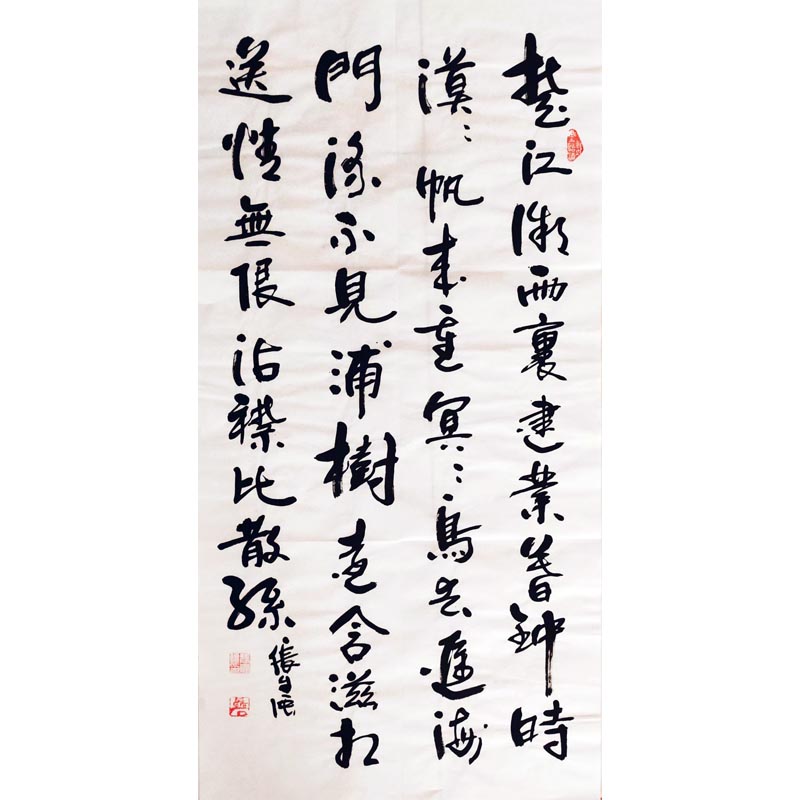 楚江微雨裏建業暮钟時
漠〻帆來重冥〻鳥去遲海
門深不見浦樹遠含滋相
送情無限沾襟比散絲
張